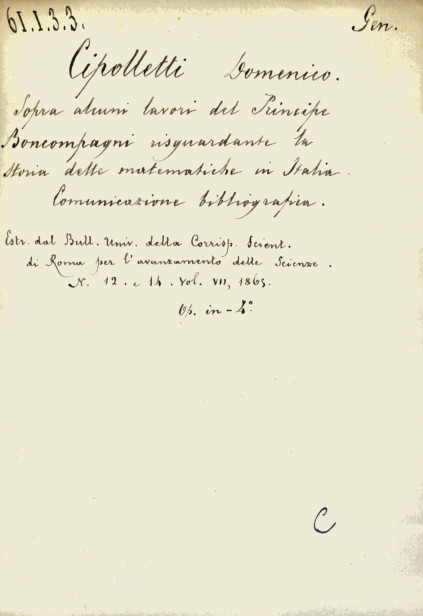 61.1.3.3. Gen.
Cipolletti Domenico.
Sopra alcuni lavori del Principe
Boncompagni risguardante la
storia delle matematiche in Italia.
Comunicazione bibliografia.
Estr. dal Bull. Univ. della Corrisp. Scient.
di Roma per l'avanzamento delle Scienze.
N. 12. e 14. Vol. VII, 1865.
Op. in-4.º
C